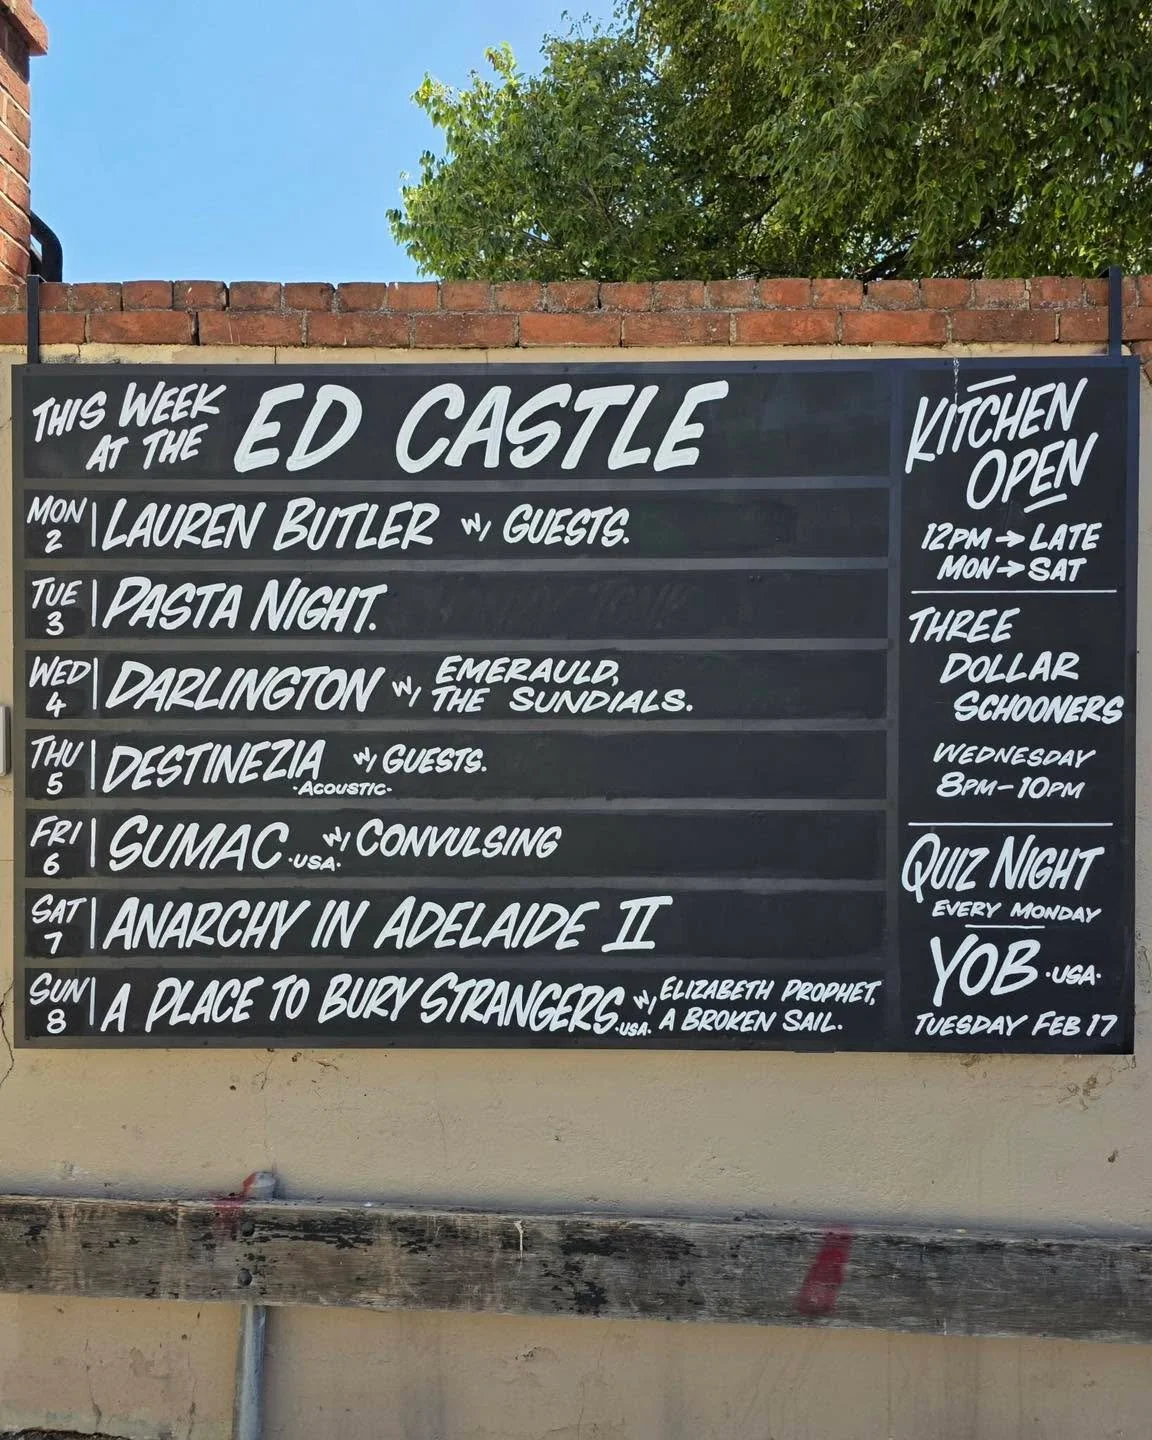 THIS WEEK
AT THE
ED CASTLE
MON
2
LAUREN BUTLER W/ GUESTS.
TUE
3
PASTA NIGHT.
WED
4
DARLINGTON W/ EMERAULD,
THE SUNDIALS.
THU
5
DESTINEZIA W/ GUESTS.
-ACOUSTIC-
FRI
6
SUMAC ·USA· W/ CONVULSING
SAT
7
ANARCHY IN ADELAIDE II
SUN
8
A PLACE TO BURY STRANGERS ·USA· W/ ELIZABETH PROPHET,
A BROKEN SAIL.
KITCHEN
OPEN
12PM → LATE
MON → SAT
THREE
DOLLAR
SCHOONERS
WEDNESDAY
8PM-10PM
QUIZ NIGHT
EVERY MONDAY
YOB ·USA·
TUESDAY FEB 17